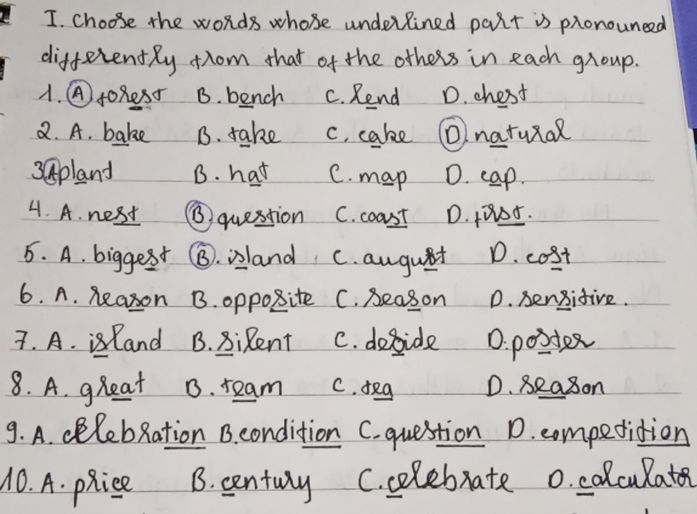 I. Choose the words whose underlined part is pronounced
differently from that of the others in each group.
1. A forest B. bench C. lend D. chest
2. A. bake B. take C. cake D. natural
3 A pland B. hat C. map D. cap.
4. A. nest B. question C. coast D. first.
5. A. biggest B. island C. august D. cost
6. A. reason B. opposite C. season D. sensitive.
7. A. island B. silent C. deside D. poster
8. A. great B. team C. tea D. season
9. A. celebration B. condition C. question D. competition
10. A. price B. century C. celebrate D. calculator